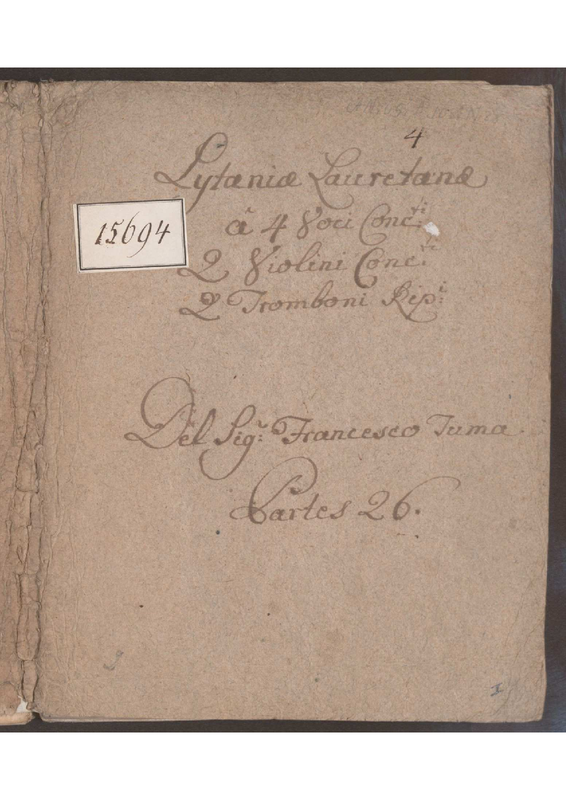 4
Lytaniæ Lauretanæ
à 4 Voci Conc:ti
15694
2 Violini Conc:ti
2 Tromboni Rip:i
Del Sig:r Francesco Tuma.
Partes 26.
I